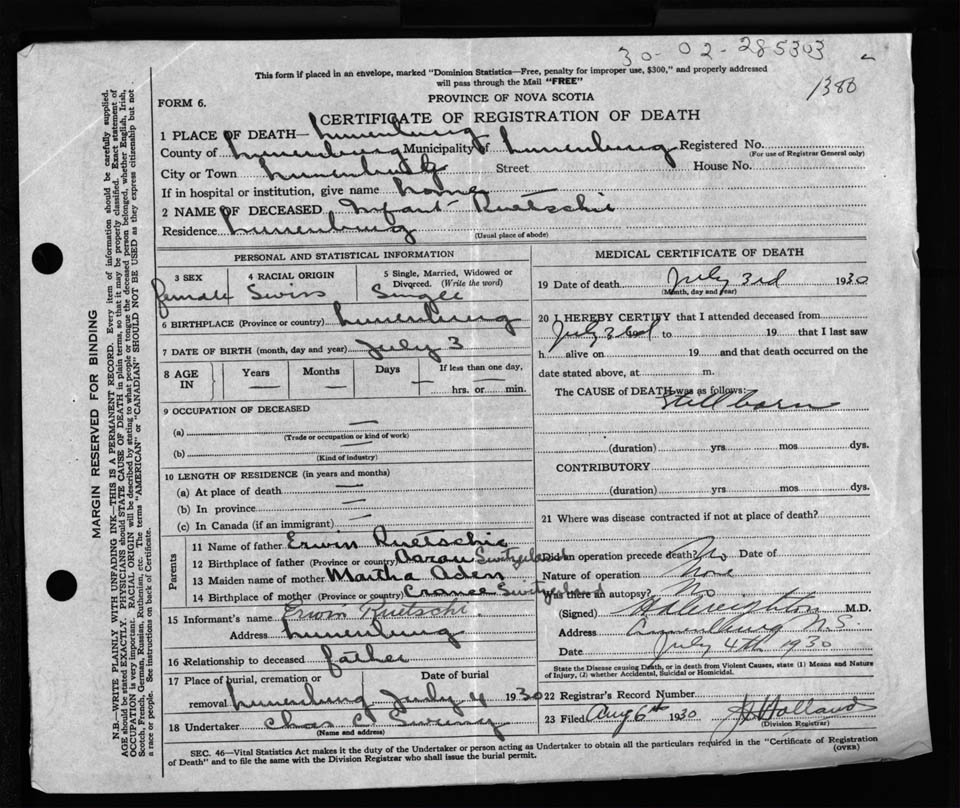 30-02-285303
1380
This form if placed in an envelope, marked "Dominion Statistics—Free, penalty for improper use, $300," and properly addressed
will pass through the Mail "FREE"
FORM 6.
PROVINCE OF NOVA SCOTIA
CERTIFICATE OF REGISTRATION OF DEATH
1 PLACE OF DEATH— Lunenburg
County of Lunenburg Municipality of Lunenburg Registered No.
(For use of Registrar General only)
City or Town Lunenburg Street House No.
If in hospital or institution, give name home
2 NAME OF DECEASED Infant Ruetschi
Residence Lunenburg
(Usual place of abode)
PERSONAL AND STATISTICAL INFORMATION
3 SEX 4 RACIAL ORIGIN 5 Single, Married, Widowed or Divorced. (Write the word)
female Swiss Single
6 BIRTHPLACE (Province or country) Lunenburg
7 DATE OF BIRTH (month, day and year) July 3
8 AGE IN Years Months Days If less than one day,
— — — — hrs. or min.
9 OCCUPATION OF DECEASED
(a) —
(Trade or occupation or kind of work)
(b)
(Kind of industry)
10 LENGTH OF RESIDENCE (in years and months)
(a) At place of death —
(b) In province —
(c) In Canada (if an immigrant) —
Parents
11 Name of father Erwin Ruetschie
12 Birthplace of father (Province or country) Aarau Switzerland
13 Maiden name of mother Martha Aden
14 Birthplace of mother (Province or country)
15 Informant's name Erwin Ruetschi
Address Lunenburg
16 Relationship to deceased father
17 Place of burial, cremation or Date of burial
removal Lunenburg July 4 1930
18 Undertaker Chas
(Name and address)
MEDICAL CERTIFICATE OF DEATH
19 Date of death July 3rd 1930
(Month, day and year)
20 I HEREBY CERTIFY that I attended deceased from
July 3 to 19 that I last saw
h alive on 19 and that death occurred on the
date stated above, at m.
The CAUSE of DEATH was as follows:
Stillborn
(duration) yrs mos dys.
CONTRIBUTORY
(duration) yrs mos dys.
21 Where was disease contracted if not at place of death?
Did an operation precede death? No Date of
Nature of operation None
Was there an autopsy? No
(Signed) M.D.
Address Lunenburg N.S.
Date July 4th 1930
State the Disease causing Death, or in death from Violent Causes, state (1) Means and Nature
of Injury, (2) whether Accidental, Suicidal or Homicidal.
22 Registrar's Record Number
23 Filed Aug 6th 1930 Holland
(Division Registrar)
SEC. 46—Vital Statistics Act makes it the duty of the Undertaker or person acting as Undertaker to obtain all the particulars required in the "Certificate of Registration
of Death" and to file the same with the Division Registrar who shall issue the burial permit.
(OVER)
MARGIN RESERVED FOR BINDING
N.B.—WRITE PLAINLY WITH UNFADING INK—THIS IS A PERMANENT RECORD. Every item of information should be carefully supplied.
AGE should be stated EXACTLY. PHYSICIANS should STATE CAUSE OF DEATH in plain terms, so that it may be properly classified. Exact statement of
OCCUPATION is very important. RACIAL ORIGIN will be described by stating to what people or tongue the deceased person belonged, whether English, Irish,
Scotch, French, German, Russian, Ruthenian, etc. The terms "AMERICAN" or "CANADIAN" SHOULD NOT BE USED as they express citizenship but not
a race or people. See instructions on back of Certificate.